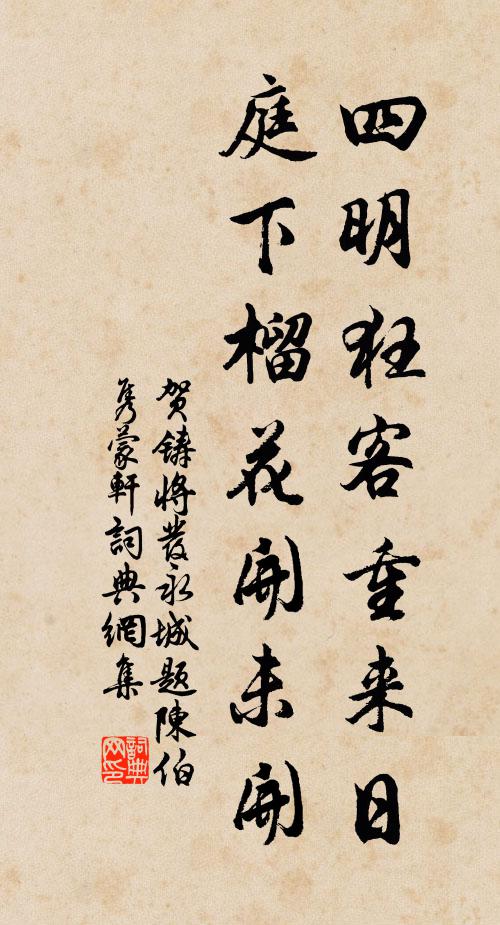 四明狂客重来日
庭下榴花開未開
贺鑄將發永城題陳伯
雋蒙軒詞典網集
詞典
网印